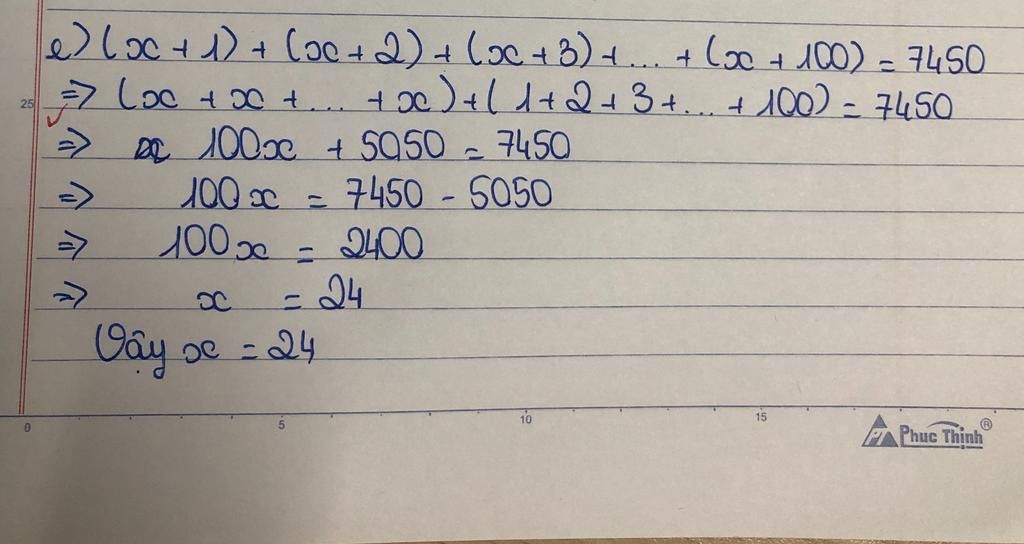 e) (x + 1) + (x + 2) + (x + 3) + ... + (x + 100) = 7450
25
=> (x + x + ... + x) + (1 + 2 + 3 + ... + 100) = 7450
=> 100x + 5050 = 7450
=> 100x = 7450 - 5050
=> 100x = 2400
=> x = 24
Vậy x = 24
0 5 10 15
Phuc Thịnh®